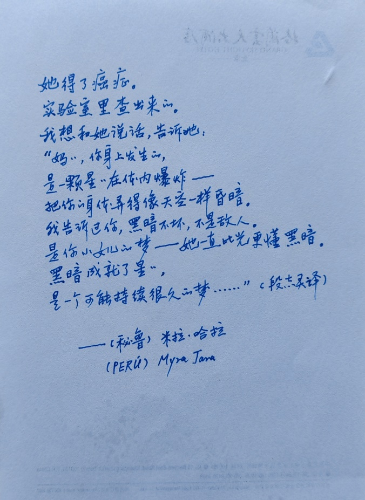 她得了癌症。
实验室里查出来的。
我想和她说话，告诉她：
“妈妈，你身上发生的，
是一颗星星在你体内爆炸——
把你的身体弄得像天空一样昏暗。
我告诉过你，黑暗不坏，不是敌人。
是你小女儿的梦——她一直比光更懂黑暗。
黑暗成就了星星，
是一个可能持续很久的梦……”（段志灵译）
——（秘鲁）米拉·哈拉
（PERÚ）Myra Jara